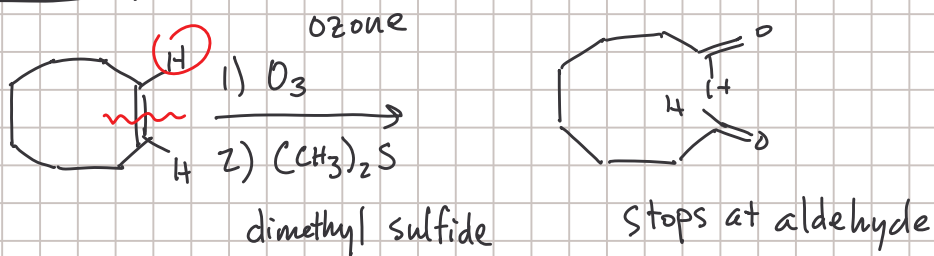 ozone
H
1) O₃
H
2) (CH₃)₂S
dimethyl sulfide
O
H
H
O
stops at aldehyde